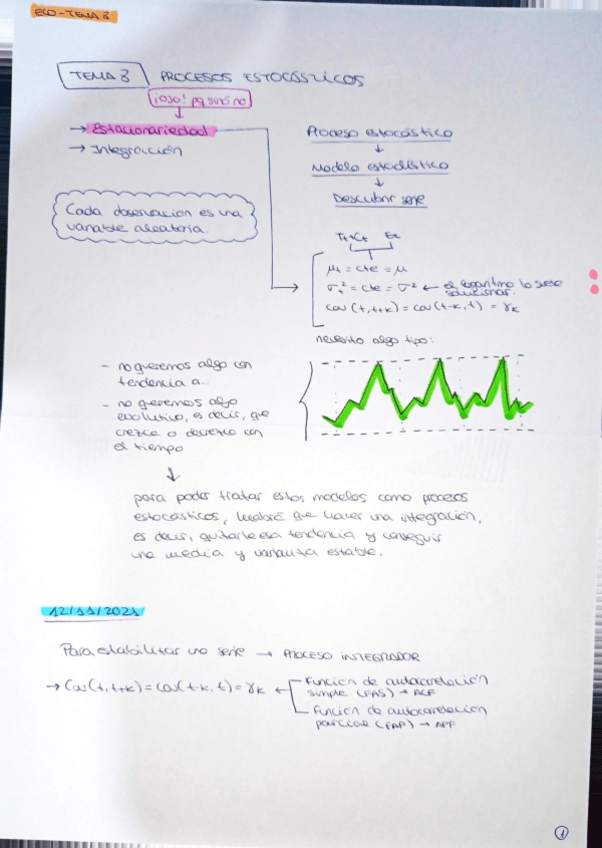 ECO - TEMA 3
TEMA 3 PROCESOS ESTOCÁSTICOS
¡ojo! pq sinó no
→ Estacionariedad
→ Integración
Proceso estocástico
↓
Modelo estadístico
↓
Descubrir serie
Cada observación es una
variable aleatoria.
Tt+Ct Et
μt = cte = μ
σt² = cte = σ² ← el logaritmo lo suele
solucionar.
cov (t, t+k) = cov (t-k, t) = γk
necesito algo tipo:
- no queremos algo con
tendencia a...
- no queremos algo
evolutivo, es decir, que
crezca o decrezca con
el tiempo
↓
para poder tratar estos modelos como procesos
estocásticos, habrá que hacer una integración,
es decir, quitarle esa tendencia y conseguir
una media y varianza estable.
12/11/2021
Para estabilizar una serie → PROCESO INTEGRADOR
→ Cov(t, t+k) = cov(t-k, t) = γk ←
Función de autocorrelación
simple (FAS) → ACF
Función de autocorrelación
parcial (FAP) → APF
1